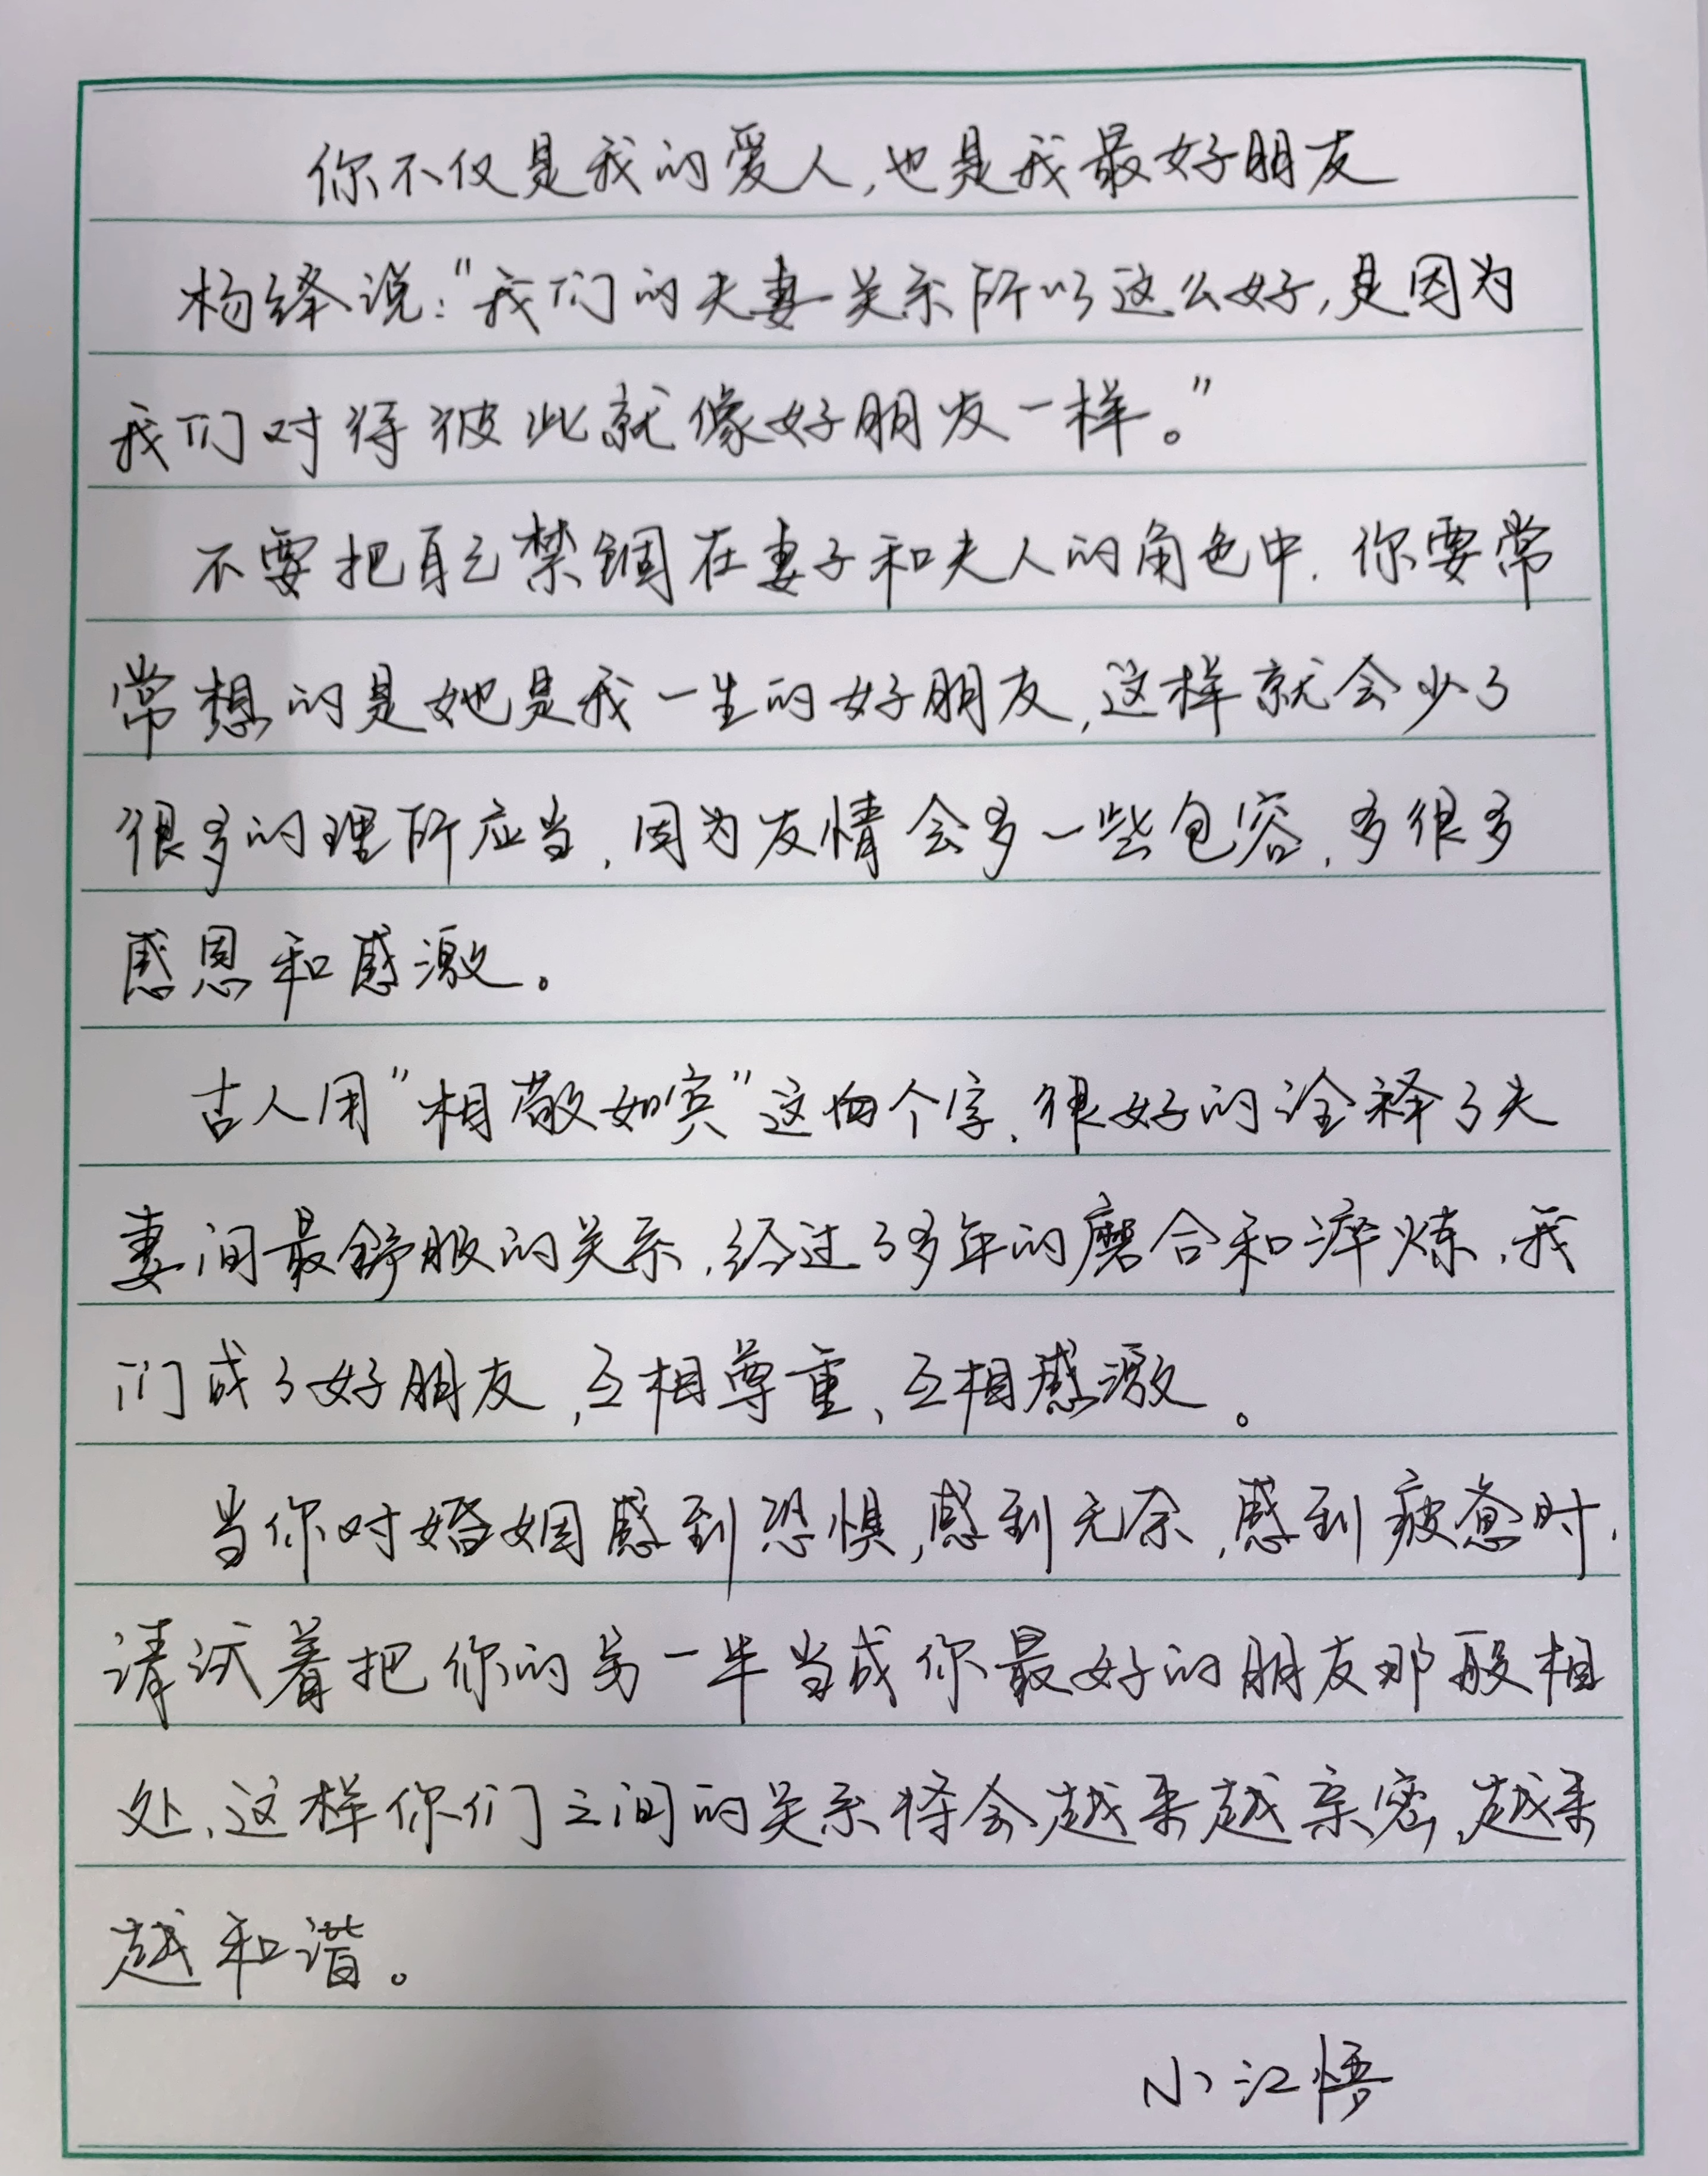 你不仅是我的爱人,也是我最好朋友
杨绛说:"我们的夫妻关系所以这么好,是因为
我们对待彼此就像好朋友一样。"
不要把自己禁锢在妻子和夫人的角色中,你要常
常想的是她是我一生的好朋友,这样就会少了
很多的理所应当,因为友情会多一些包容,多很多
感恩和感激。
古人用"相敬如宾"这四个字,很好的诠释了夫
妻间最舒服的关系,经过了多年的磨合和淬炼,我
们成了好朋友,互相尊重、互相感激。
当你对婚姻感到恐惧,感到无奈,感到疲惫时,
请试着把你的另一半当成你最好的朋友那般相
处,这样你们之间的关系将会越来越亲密,越来
越和谐。
小江悟